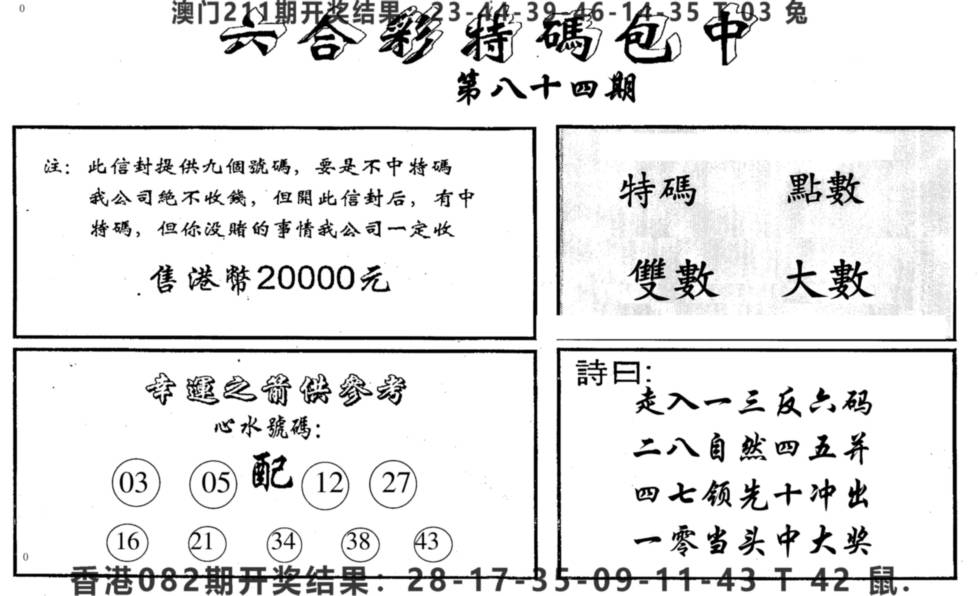 澳门211期开奖结果：23-44-39-46-14-35 T 03 兔
六合彩特碼包中
第八十四期
注：此信封提供九個號碼，要是不中特碼
我公司絕不收錢，但開此信封后，有中
特碼，但你没賭的事情我公司一定收
售港幣20000元
特碼 點數
雙數 大數
幸運之箭供參考
心水號碼：
配
03 05 12 27
16 21 34 38 43
詩曰:
走入一三反六码
二八自然四五并
四七领先十冲出
一零当头中大奖
香港082期开奖结果：28-17-35-09-11-43 T 42 鼠.